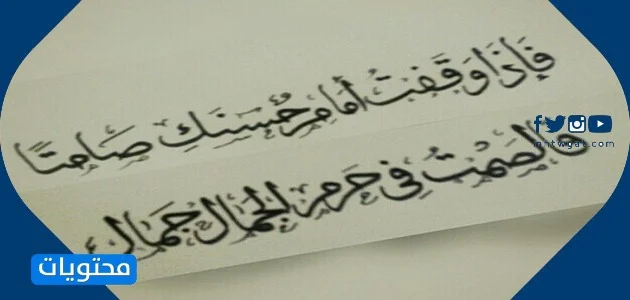 فَإذَا وَقَفتُ أمَام حُسنَكِ صَامتًا
فالصَمْتُ فِي حَرم الجَمَال جَمَال
mhtwyat.com
محتويات